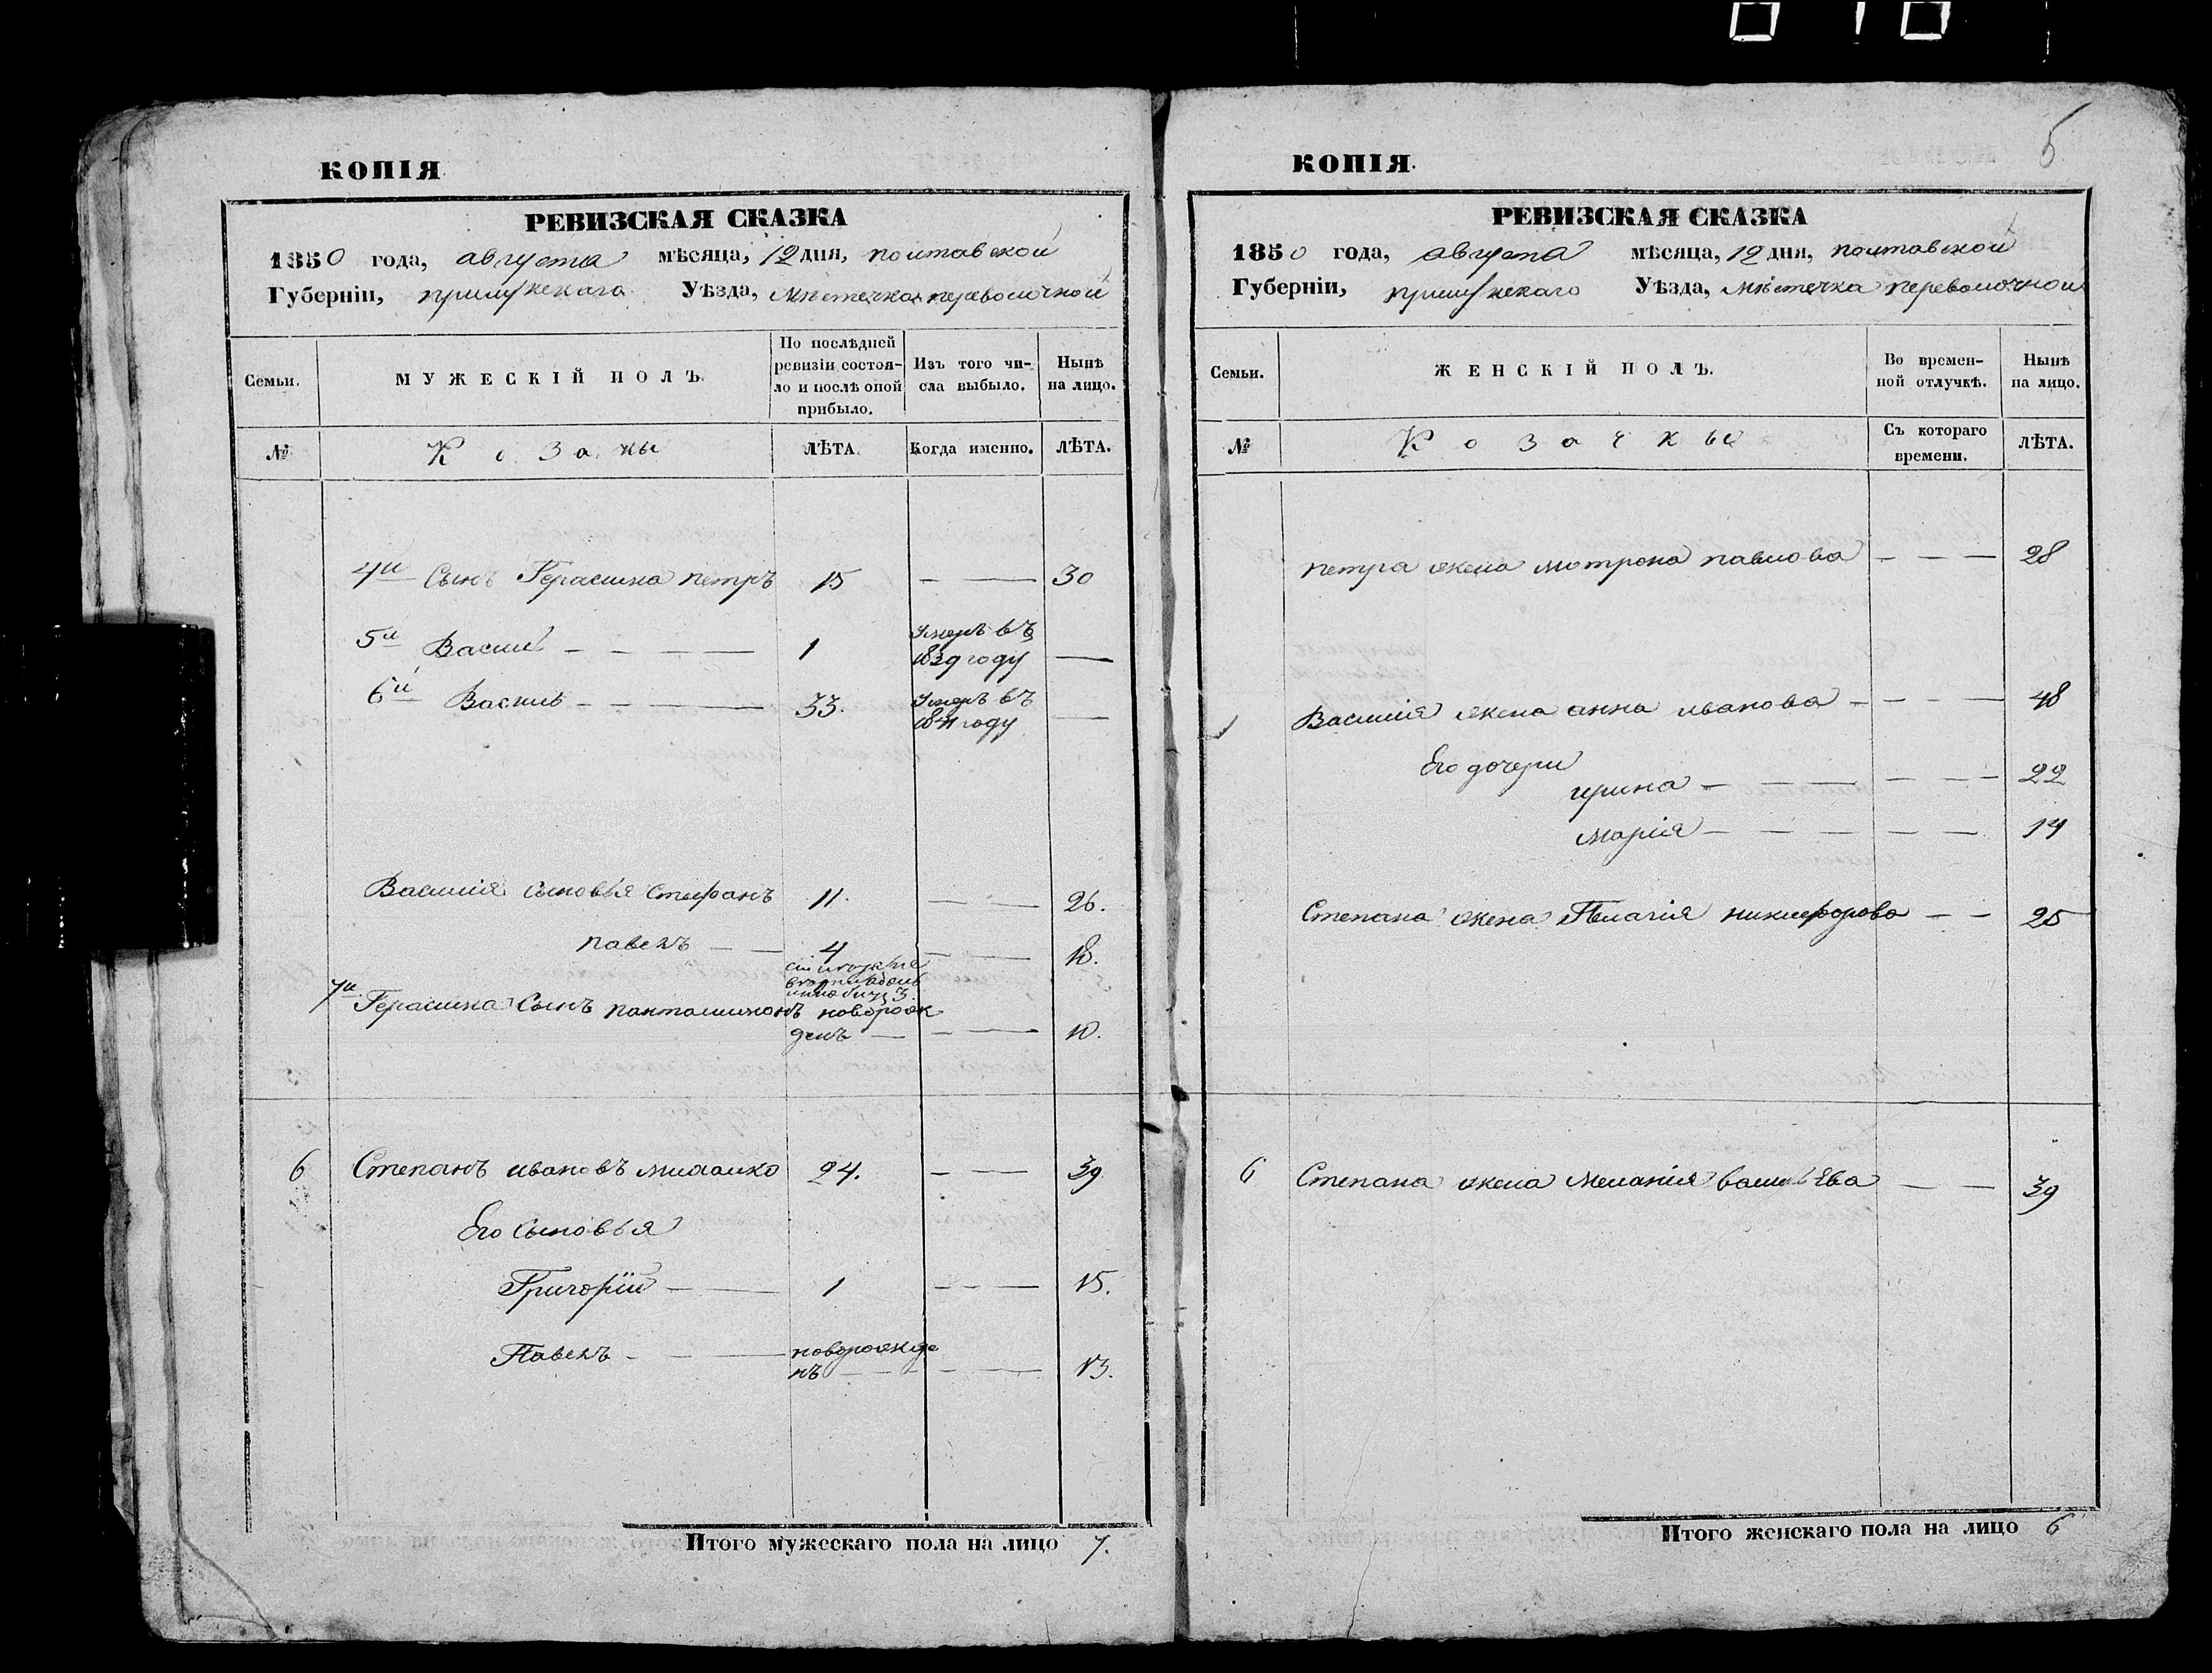 КОПІЯ.
РЕВИЗСКАЯ СКАЗКА
1850 года, августа мѣсяца, 12 дня, полтавской
Губерніи, прилужскаго Уѣзда, Мѣстечка переволочной
Семьи.
МУЖЕСКІЙ ПОЛЪ.
По послѣдней ревизіи состоя-
ло и послѣ оной прибыло.
Изъ того чи-
сла выбыло.
Нынѣ на лицо.
№
Козаки
ЛѢТА.
Когда именно.
ЛѢТА.
4й Сынъ Герасима петръ 15 — — 30
5й Васили — — — — 1 Умеръ въ 1839 году —
6й Василь — — — — 33. Умеръ въ 1841 году —
Василія сыновья стефанъ 11. — — 26.
павелъ — — 4 — — 18.
7й Герасима Сынъ панталимонъ новорож
денъ — — — 10.
6 Степанъ ивановъ 24. — — 39
Его сыновья
Григорій — — 1 — — 15.
Павелъ — — новорожде
нъ — — — — 13.
Итого мужескаго пола на лицо 7.
5
КОПІЯ.
РЕВИЗСКАЯ СКАЗКА
1850 года, августа мѣсяца, 12 дня, полтавской
Губерніи, прилужскаго Уѣзда, Мѣстечка переволочной
Семьи.
ЖЕНСКІЙ ПОЛЪ.
Во времен-
ной отлучкѣ.
Нынѣ на лицо.
№
Козачки
Съ котораго времени.
ЛѢТА.
петра жена мотрона павлова — — — 28
Василія жена анна иванова — — — 48
Его дочери
ирина — — — — — — 22
марія — — — — — 14
Степана жена Пелагія никифорова — — 25
6 Степана жена Меланія васильева — — 39
Итого женскаго пола на лицо 6